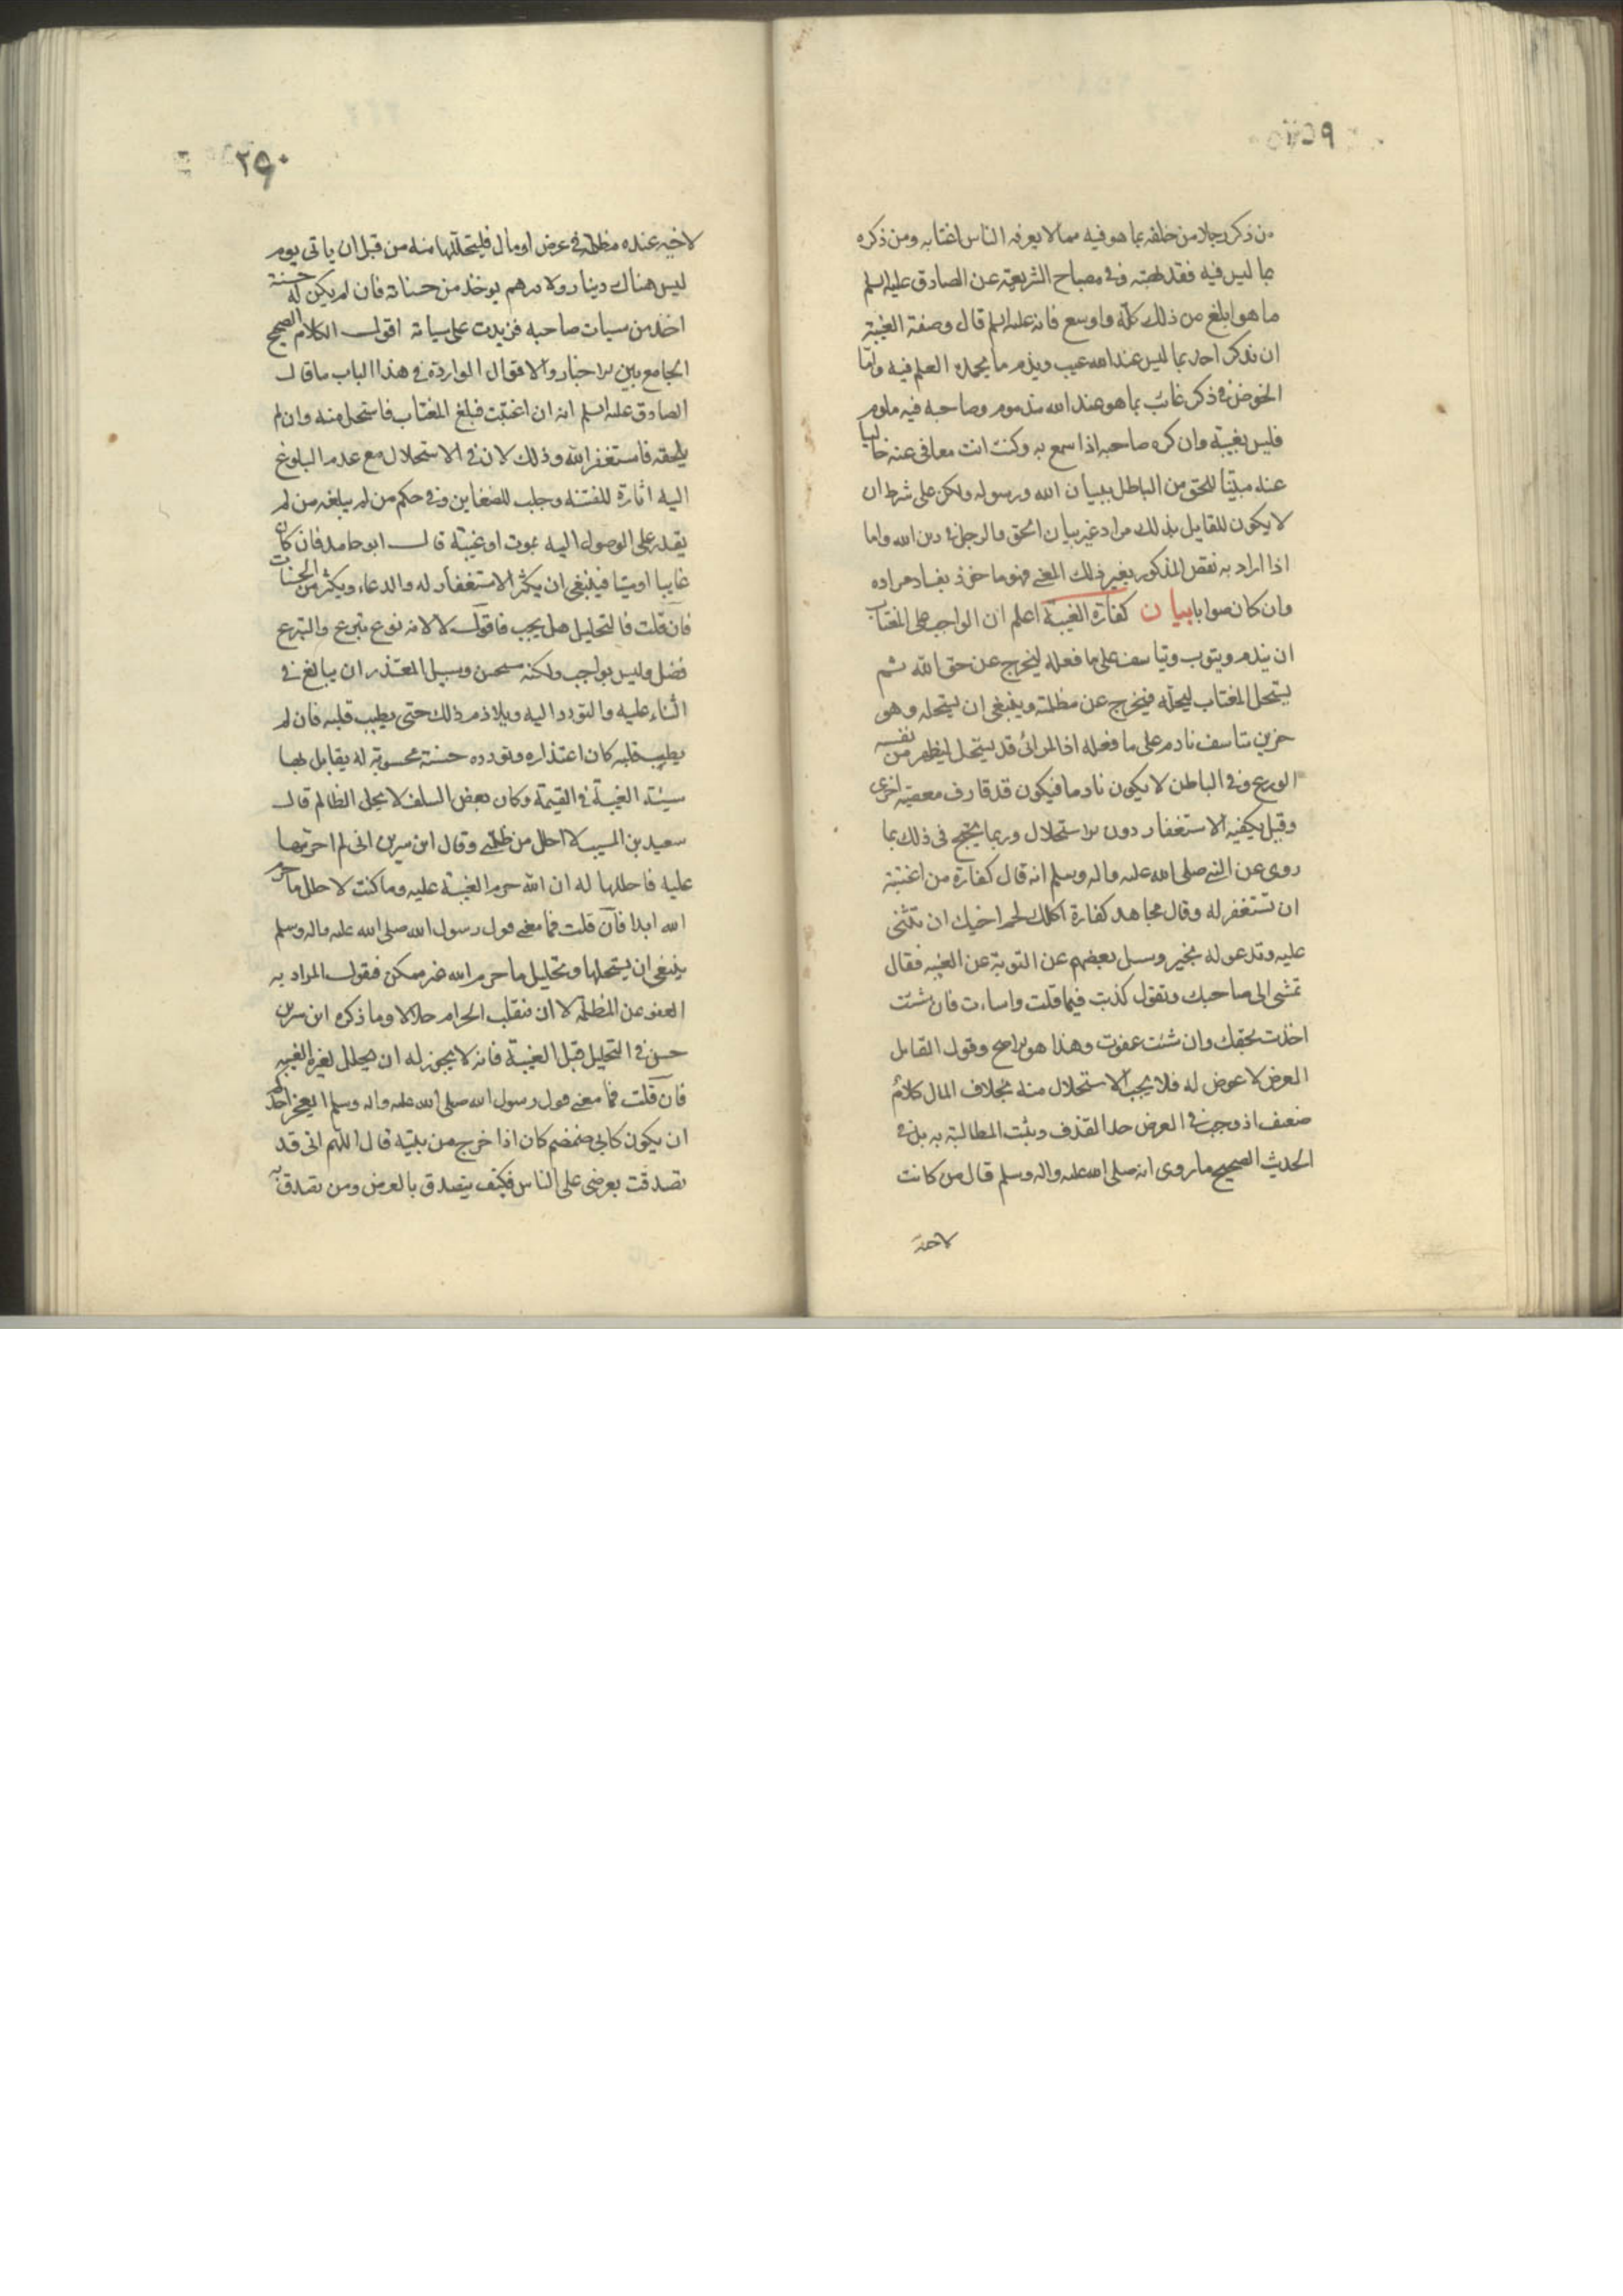 ٢٥٩
من ذكر رجلا من خلفه بما هو فيه مما لا يعرفه الناس اغتابه ومن ذكره
بما ليس فيه فقد بهته وفى مصباح الشريعة عن الصادق عليه السلم
ما هو ابلغ من ذلك كلّه واوسع فانه عليه السلم قال وصفة الغيبة
ان تذكر احدا بما ليس عند الله عيب ويذم ما يحمده العلم فيه وامّا
الخوض فى ذكر غائب بما هو عند الله مذموم وصاحبه فيه ملوم
فليس بغيبة وان كره صاحبه اذا سمع به وكنت انت معافى عنه خاليا
عنه مبيّنا للحق من الباطل ببيان الله ورسوله ولكن على شرط ان
لا يكون للقايل بذلك مراد غير بيان الحق والرجل فى دين الله واما
اذا اراد به نقص المذكور بغير ذلك المعنى فهو ماخوذ بفساد مراده
وان كان صوابا بيان كفارة الغيبة اعلم ان الواجب على المغتاب
ان يندم ويتوب ويتاسف على ما فعله ليخرج عن حق الله ثم
يستحل المغتاب ليحلّه فيخرج عن مظلمته وينبغى ان يستحله وهو
حزين متاسف نادم على ما فعله اذ المرائى قد يستحل ليظهر من نفسه
الورع وفى الباطن لا يكون نادما فيكون قد قارف معصية اخرى
وقيل يكفيه الاستغفار دون الاستحلال وربما يحتج فى ذلك بما
روى عن النبى صلى الله عليه واله وسلم انه قال كفارة من اغتبته
ان تستغفر له وقال مجاهد كفارة اكلك لحم اخيك ان تثنى
عليه وتدعو له بخير وسئل بعضهم عن التوبة عن الغيبه فقال
تمشى الى صاحبك وتقول كذبت فيما قلت واساءت فان شئت
اخذت بحقك وان شئت عفوت وهذا هو الاصح وقول القايل
العرض لا عوض له فلا يجب الاستحلال منه بخلاف المال كلام
ضعيف اذ وجب فى العرض حد القذف ويثبت المطالبة به بل فى
الحديث الصحيح ما روى انه صلى الله عليه واله وسلم قال من كانت
لاخيه
٢٥٠
لاخيه عنده مظلمة فى عرض او مال فليتحللها منه من قبل ان ياتى يوم
ليس هناك دينار ولا درهم يوخذ من حسناته فان لم يكن له حسنة
اخذ من سيات صاحبه فزيدت على سياته اقول الكلام الصحيح
الجامع بين الاخبار والاقوال الواردة فى هذا الباب ما قال
الصادق عليه السلم انه ان اغتبت فبلغ المغتاب فاستحل منه وان لم
يلحقه فاستغفر الله وذلك لان فى الاستحلال مع عدم البلوغ
اليه اثارة للفتنه وجلب للضغاين وفى حكم من لم يبلغه من لم
يقدر على الوصول اليه بموت او غيبة قال ابو حامد فان كان
غايبا او ميتا فينبغى ان يكثر الاستغفار له والدعاء ويكثر من الحسنات
فان قلت فالتحليل هل يجب فاقول لا لانه نوع تبرع والتبرع
فضل وليس بواجب ولكنه مستحسن وسبيل المعتذر ان يبالغ فى
الثناء عليه والتودد اليه ويلازم ذلك حتى يطيب قلبه فان لم
يطيب قلبه كان اعتذاره وتودده حسنة محسوبة له يقابل بها
سيئة الغيبة فى القيمة وكان بعض السلف لا يحلل الظالم قال
سعيد بن المسيب لا احلل من ظلمنى وقال ابن سيرين انى لم احرمها
عليه فاحللها له ان الله حرم الغيبة عليه وما كنت لاحلل ما حرم
الله ابدا فان قلت فما معنى قول رسول الله صلى الله عليه واله وسلم
ينبغى ان يستحلها وتحليل ما حرم الله غير ممكن فنقول المراد به
العفو عن المظلمة لا ان ينقلب الحرام حلالا وما ذكره ابن سيرين
حسن فى التحليل قبل الغيبة فانه لا يجوز له ان يحلل لغيره الغيبه
فان قلت فما معنى قول رسول الله صلى الله عليه واله وسلم ايعجز احدكم
ان يكون كابى ضمضم كان اذا خرج من بيته قال اللهم انى قد
تصدقت بعرضى على الناس فكيف يتصدق بالعرض ومن تصدق به